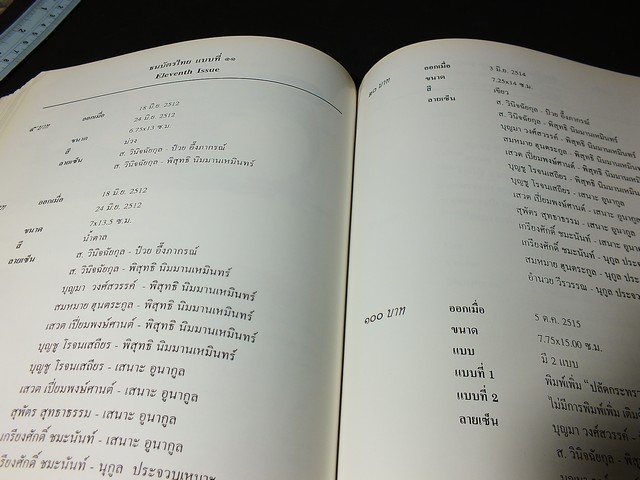 ธนบัตรไทย แบบที่ ๑๑
Eleventh Issue
๕ บาท
18 มิ.ย. 2512
ออกเมื่อ 24 มิ.ย. 2512
ขนาด 6.75x13 ซ.ม.
สี ม่วง
ลายเซ็น ส. วินิจฉัยกุล - ป๋วย อึ๊งภากรณ์
ส. วินิจฉัยกุล - พิสุทธิ นิมมานเหมินทร์
ออกเมื่อ 18 มิ.ย. 2512
24 มิ.ย. 2512
ขนาด 7x13.5 ซ.ม.
สี น้ำตาล
ลายเซ็น ส. วินิจฉัยกุล - ป๋วย อึ๊งภากรณ์
ส. วินิจฉัยกุล - พิสุทธิ นิมมานเหมินทร์
บุญมา วงศ์สวรรค์ - พิสุทธิ นิมมานเหมินทร์
สมหมาย ฮุนตระกูล - พิสุทธิ นิมมานเหมินทร์
เสวต เปี่ยมพงษ์ศานต์ - พิสุทธิ นิมมานเหมินทร์
บุญชู โรจนเสถียร - พิสุทธิ นิมมานเหมินทร์
บุญชู โรจนเสถียร - เสนาะ อูนากูล
เสวต เปี่ยมพงษ์ศานต์ - เสนาะ อูนากูล
สุพัตร สุทธาธรรม - เสนาะ อูนากูล
เกรียงศักดิ์ ชมะนันท์ - เสนาะ อูนากูล
เกรียงศักดิ์ ชมะนันท์ - นุกูล ประจวบเหมาะ
๒๐ บาท
ออกเมื่อ 3 มิ.ย. 2514
ขนาด 7.25x14 ซ.ม.
สี เขียว
ลายเซ็น ส. วินิจฉัยกุล - ป๋วย อึ๊งภากรณ์
ส. วินิจฉัยกุล - พิสุทธิ นิมมานเหมินทร์
บุญมา วงศ์สวรรค์ - พิสุทธิ นิมมานเหมินทร์
สมหมาย ฮุนตระกูล - พิสุทธิ นิมมานเหมินทร์
เสวต เปี่ยมพงษ์ศานต์ - พิสุทธิ นิมมานเหมิน
บุญชู โรจนเสถียร - พิสุทธิ นิมมานเหมิน
บุญชู โรจนเสถียร - เสนาะ อูนากูล
เสวต เปี่ยมพงษ์ศานต์ - เสนาะ อูนากูล
สุพัตร สุทธาธรรม - เสนาะ อูนากูล
เกรียงศักดิ์ ชมะนันท์ - เสนาะ อูนา
เกรียงศักดิ์ ชมะนันท์ - นุกูล ประ
สมหมาย ฮุนตระกูล - นุกูล ประ
อำนวย วีรวรรณ - นุกูล ประจว
๑๐๐ บาท
ออกเมื่อ 5 ต.ค. 2515
ขนาด 7.75x15.00 ซ.ม.
แบบ มี 2 แบบ
แบบที่ 1 พิมพ์เพิ่ม "ปลัดกระทร
แบบที่ 2 ไม่มีการพิมพ์เพิ่ม เติม
ลายเซ็น บุญมา วงศ์สวรรค์ -
ส. วินิจฉัยกุล - พิส